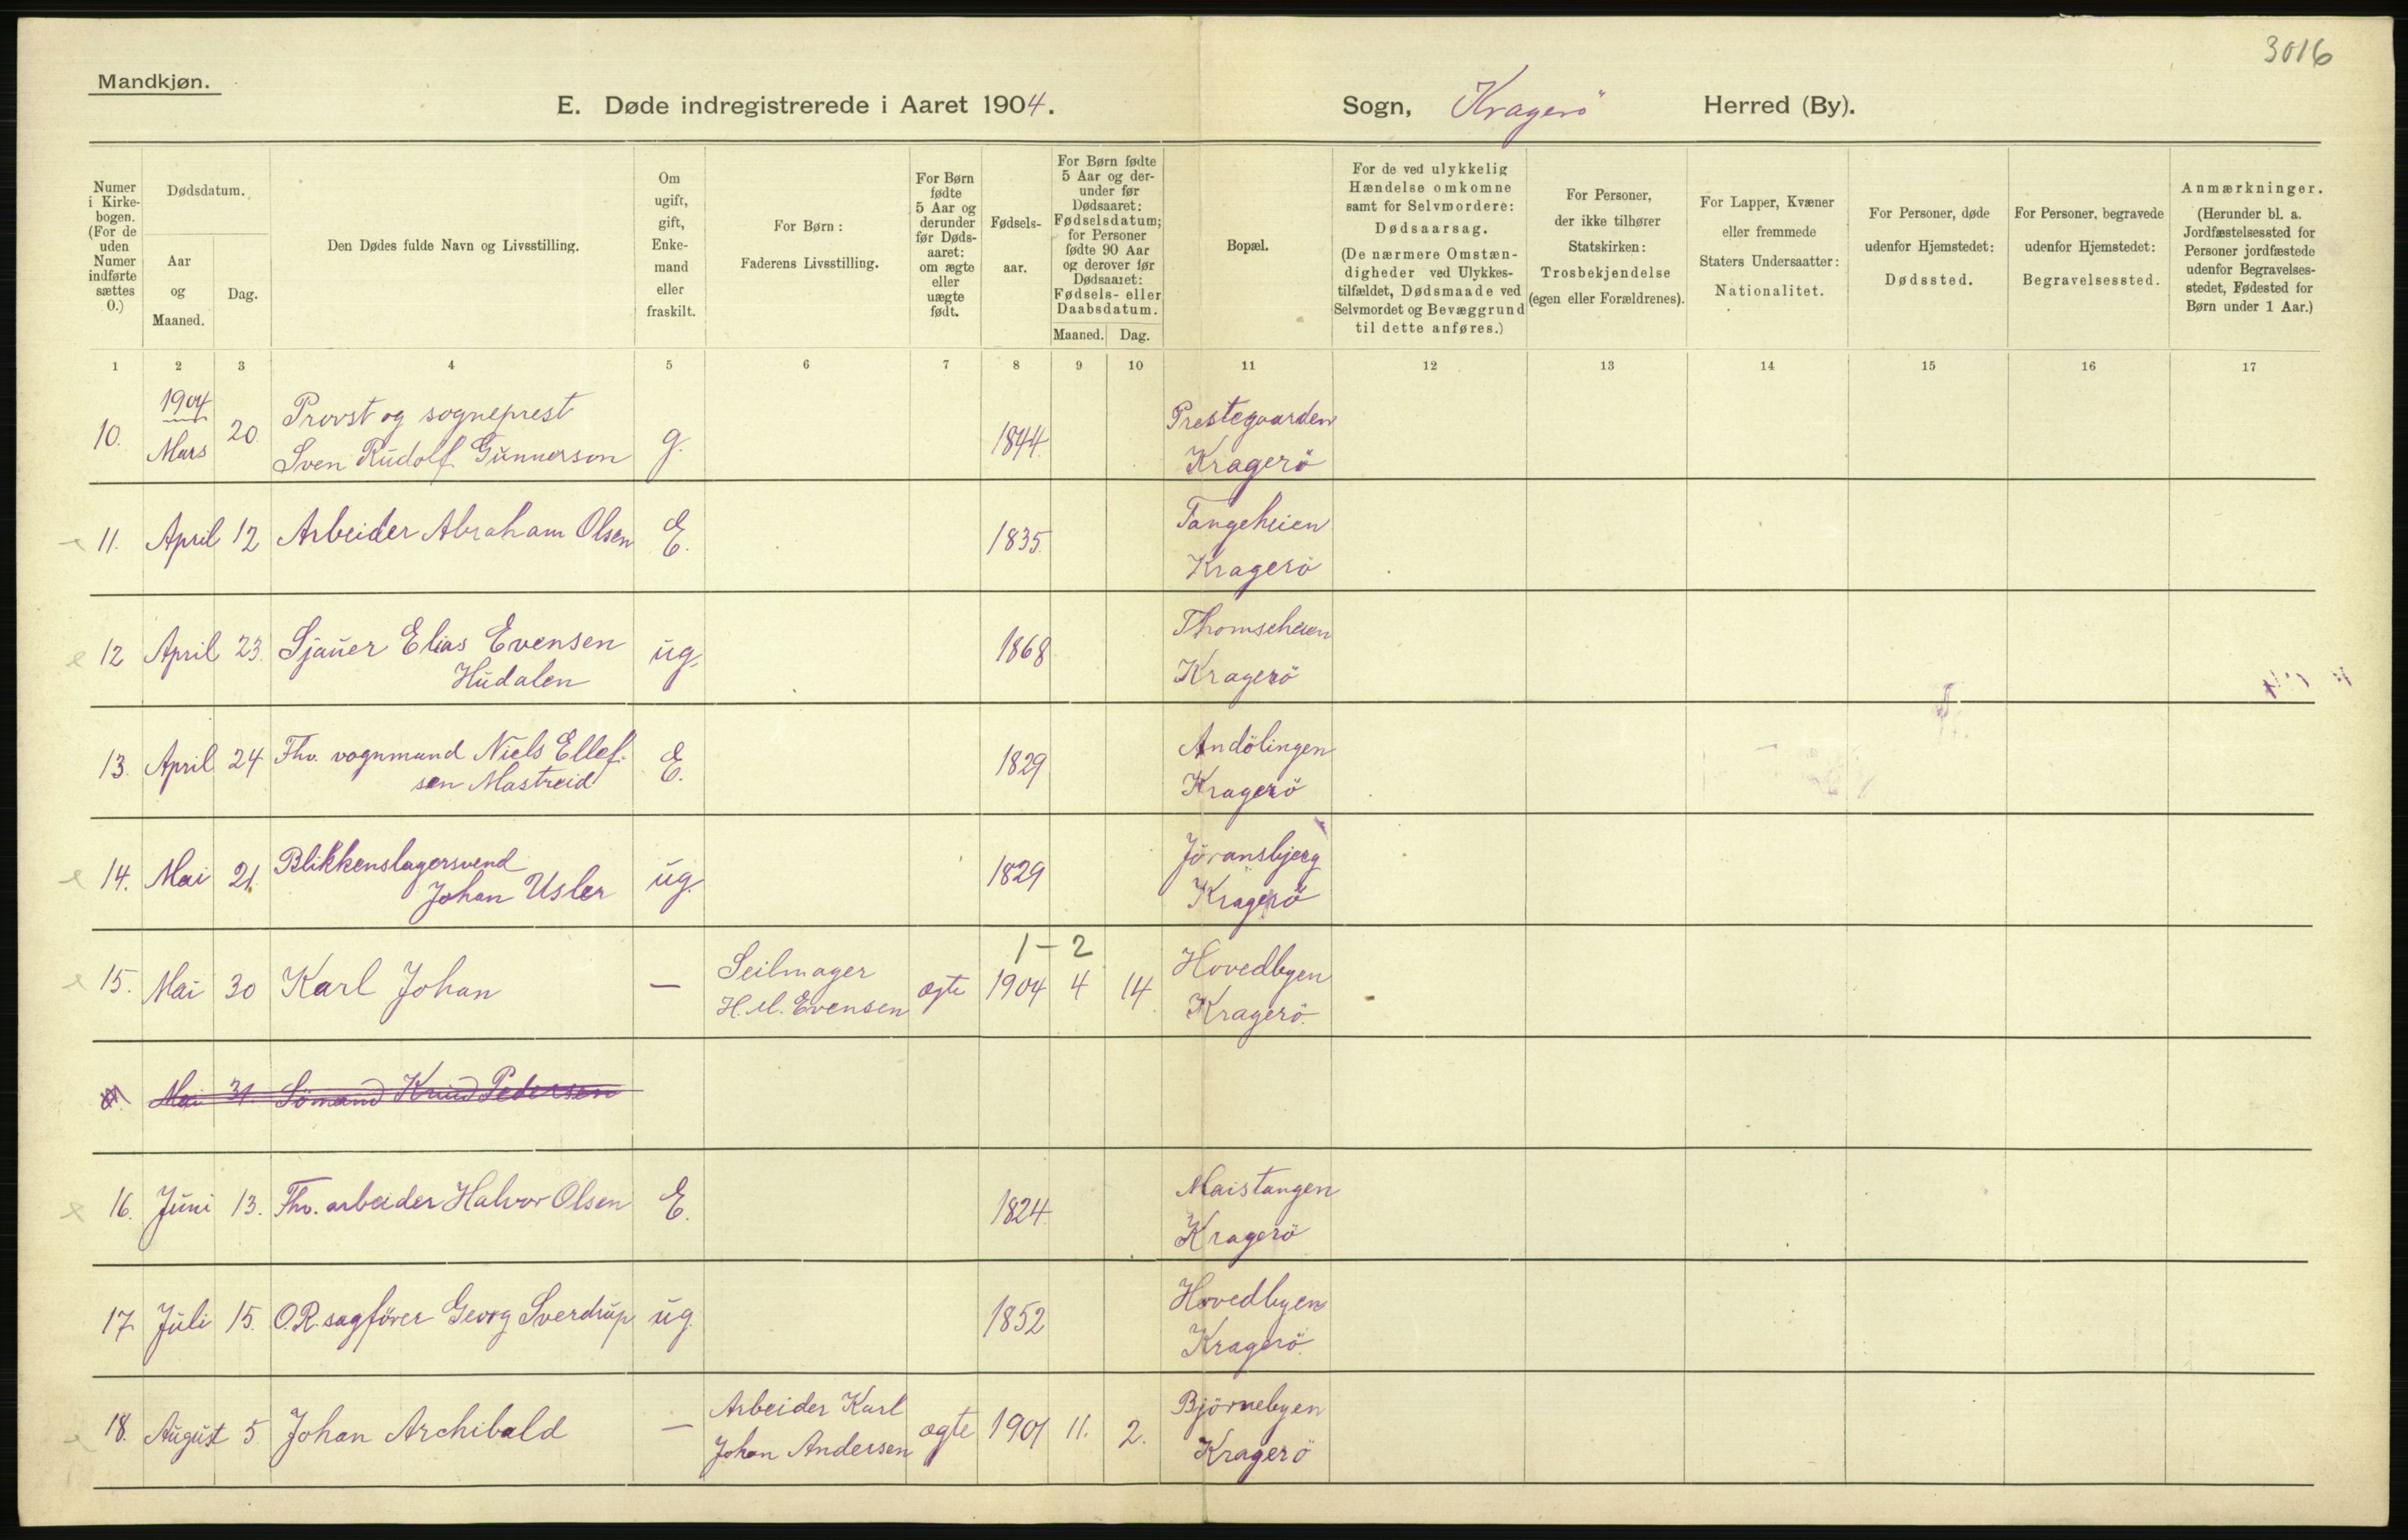 3016
Mandkjøn.
E. Døde indregistrerede i Aaret 1904. Sogn, Kragerö Herred (By).
Numer i Kirkebogen. (For de uden Numer indførte sættes 0.)
Dødsdatum.
Aar og Maaned.
Dag.
Den Dødes fulde Navn og Livsstilling.
Om ugift, gift, Enkemand eller fraskilt.
For Børn:
Faderens Livsstilling.
For Børn fødte 5 Aar og derunder før Dødsaaret: om ægte eller uægte født.
Fødselsaar.
For Børn fødte 5 Aar og derunder før Dødsaaret: Fødselsdatum; for Personer fødte 90 Aar og derover før Dødsaaret: Fødsels- eller Daabsdatum.
Maaned. Dag.
Bopæl.
For de ved ulykkelig Hændelse omkomne samt for Selvmordere: Dødsaarsag.
(De nærmere Omstændigheder ved Ulykkestilfældet, Dødsmaade ved Selvmordet og Bevæggrund til dette anføres.)
For Personer, der ikke tilhører Statskirken: Trosbekjendelse (egen eller Forældrenes).
For Lapper, Kvæner eller fremmede Staters Undersaatter: Nationalitet.
For Personer, døde udenfor Hjemstedet: Dødssted.
For Personer, begravede udenfor Hjemstedet: Begravelsessted.
Anmærkninger.
(Herunder bl. a. Jordfæstelsessted for Personer jordfæstede udenfor Begravelsesstedet, Fødested for Børn under 1 Aar.)
1 2 3 4 5 6 7 8 9 10 11 12 13 14 15 16 17
1904
10. Mars 20 Provst og sogneprest
Sven Rudolf Gunnerson g. 1844. Prestegaarden
Kragerö
11. April 12 Arbeider Abraham Olsen E. 1835. Tangeheien
Kragerö
12 April 23. Sjauer Elias Evensen
Hudalen ug. 1868 Thomseheien
Kragerö
13. April 24 Fhv. vognmand Niels Ellef-
sen Mastreid E. 1829 Andölingen
Kragerö
14. Mai 21. Blikkenslagersvend
Johan Usler ug. 1829 Jöransbjerg
Kragerö
1-2
15. Mai 30 Karl Johan — Seilmager
H. M. Evensen ægte 1904 4 14. Hovedbyen
Kragerö.
Mai 31. Sömand Knud Pedersen
16. Juni 13. Fhv. arbeider Halvor Olsen E. 1824. Maistangen
Kragerö
17. Juli 15. O.R. sagförer Georg Sverdrup ug. 1852 Hovedbyen
Kragerö.
18. August 5. Johan Archibald — Arbeider Karl
Johan Andersen ægte 1901 11. 2. Björnebyen
Kragerö